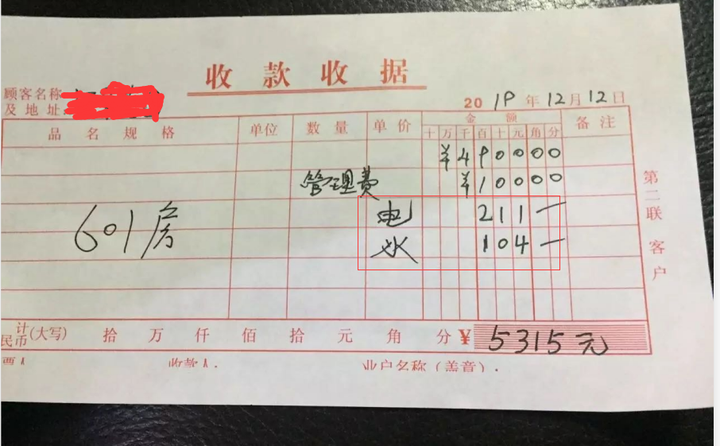 收款收据
顾客名称
及地址
2019年12月12日
品名规格 单位 数量 单价 金额 备注
十万千百十元角分
¥490000
管理费 ¥10000
601房 电 211一
水 104一
计 (大写) 拾 万 仟 佰 拾 元 角 分 ¥ 5315元
民币
收款人: 业户名称(盖章):
第二联 客户